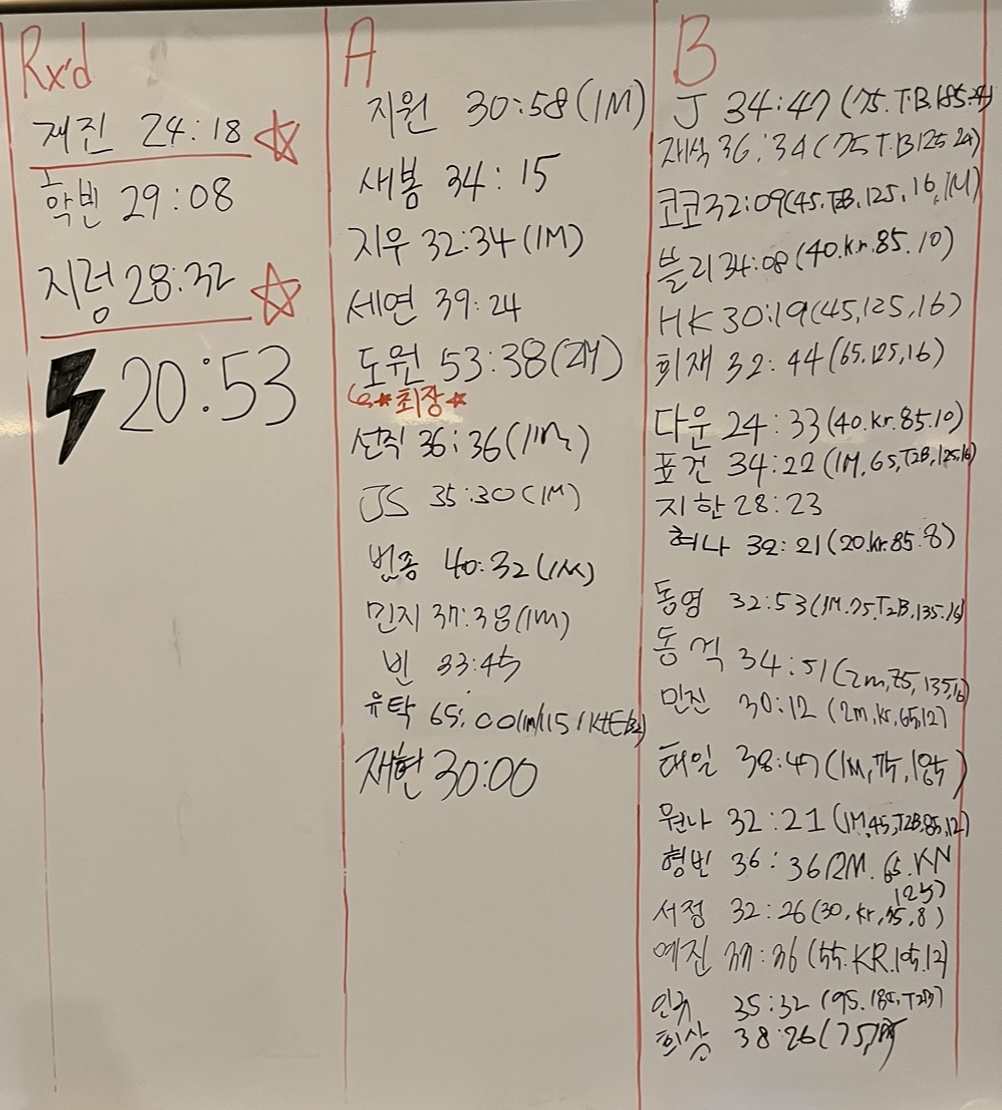 Rx'd
재진 24:18
학빈 29:08
지렁 28:32
20:53
A
지원 30:58(1M)
새봄 34:15
지우 32:34(1M)
세연 39:24
도원 53:38(2M)
최장
선직 36:36(1M)
JS 35:30(1M)
번종 40:32(1M)
민지 37:38(1M)
빈 33:45
유탁 65:00(1M/115/
재현 30:00
B
J 34:47(75.T.B.185.24)
재식 36:34(75 T.B 125 24)
코코 32:09(45.T2B.125.16.1M)
블리 34:08(40.kr.85.10)
HK 30:19(45,125,16)
희재 32:44(65.125,16)
다운 24:33(40.kr.85.10)
표건 34:22(1M,65,T2B,125,16)
지한 28:23
혀나 32:21(20.kr.85.8)
동영 32:53(1M.75.T2B.135.16)
동 34:51(2m,75,135,16)
민진 30:12(2m,kr,65,12)
태일 38:47(1M,75,185)
원나 32:21(1M,45,T2B,85,12)
형빈 36:36(2M.65.KN
125)
서정 32:26(30.kr.75,8)
예진 37:36(55.KR.105.12)
인규 35:32(95.185,T2B)
희상 38:26(75,